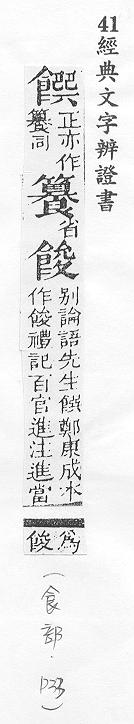 41經典文字辨證書
饌正亦作
籑同
籑省
餕別論語先生饌鄭康成本
作餕禮記百官進注進當
爲
餕
(食部.